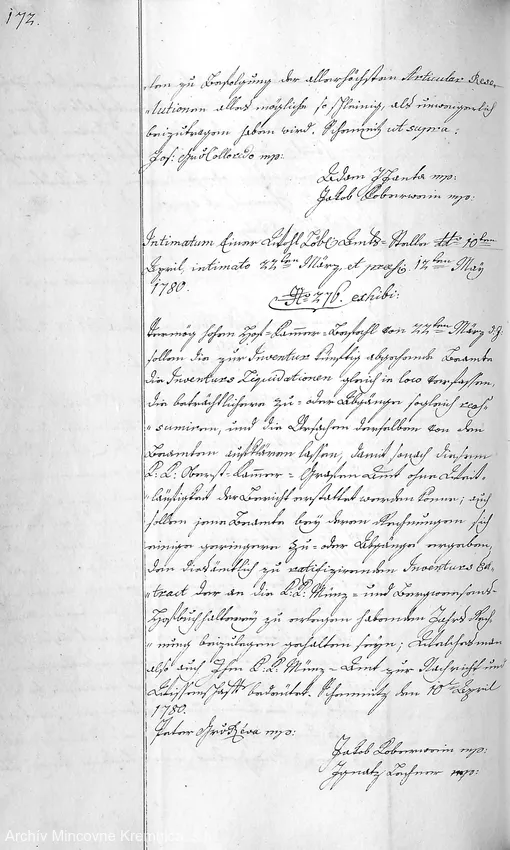 172.
len zu Befolgung der allerhöchsten Articular Reso-
lutionen alles mögliche so schleinig, als unweigerlich
beizutragen haben wird. Schemnitz ut supra:
Jos: Gr: v Colloredo mp:
Adam mp:
Jakob Koberwein mp:
Intimatum Einer Löbl: Amts-Stelle dto 10ten
April, intimato 22ten März, et praes: 12ten May
1780.
No 276. exhibi:
Vermög hohen Hof-Kammer-Befehl von 22ten März d: J:
sollen die zur Inventur künftig abgehende Beamte
die Inventurs Liquidationen gleich in loco verfassen,
die beträchtlichere Zu- oder Abgänge sogleich
sumiren, und die Ursachen derselben von den
Beamten aufklären lassen, damit sonach diesem
K: K: Oberst-Kammer-Grafen Amt ohne Weit-
läufigkeit der Bericht erstattet werden könne; auch
sollen jene Beamte bey deren Rechnungen sich
einige geringere Zu- oder Abgänge ergeben,
den diesämtlich zu ratifizirenden Inventurs Ex-
tract der an die K: K: Münz- und Bergwesens-
Hofbuchhalterey zu erlegen habenden Jahrs Rech-
nung beizulegen gehalten seyn; Welches man
also auch Ihme K: K: Münz-Amt zur Nachricht und
Wissenschaft bedeutet. Schemnitz den 10t April
1780.
Peter mp:
Jakob Koberwein mp:
Ignatz Lechner mp:
Archiv Mincovne Kremnica